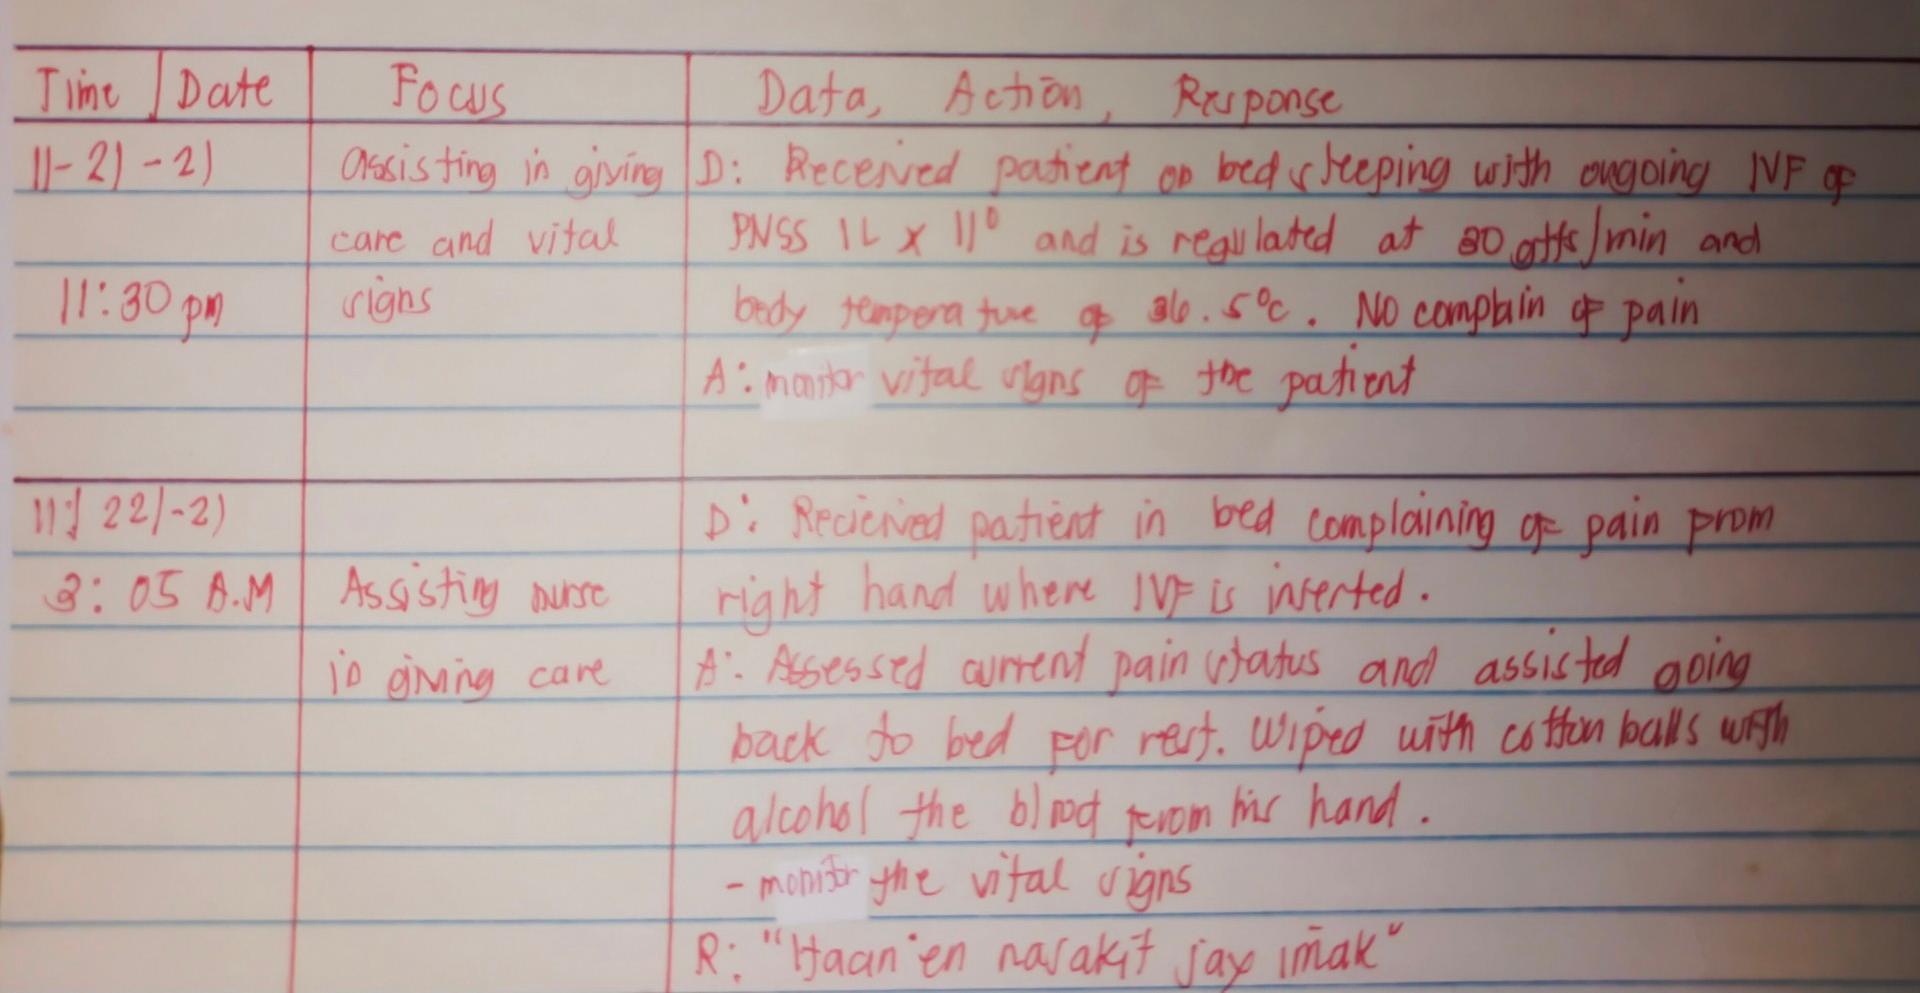 Time | Date Focus Data, Action, Response
11-21-21 assisting in giving D: Received patient on bed sleeping with ongoing IVF of
care and vital PNSS 1L x 11° and is regulated at 30 gtts/min and
11:30 pm signs body temperature of 36.5°c. No complain of pain
A: monitor vital signs of the patient
22/-21 D: Recieived patient in bed complaining of pain prom
3:05 A.M Assisting nurse right hand where IVF is inserted.
in giving care A: Assessed current pain status and assisted going
back to bed for rest. Wiped with cotton balls with
alcohol the blood from his hand.
- monitor the vital signs
R: "Haan'en nasakit jay imak"